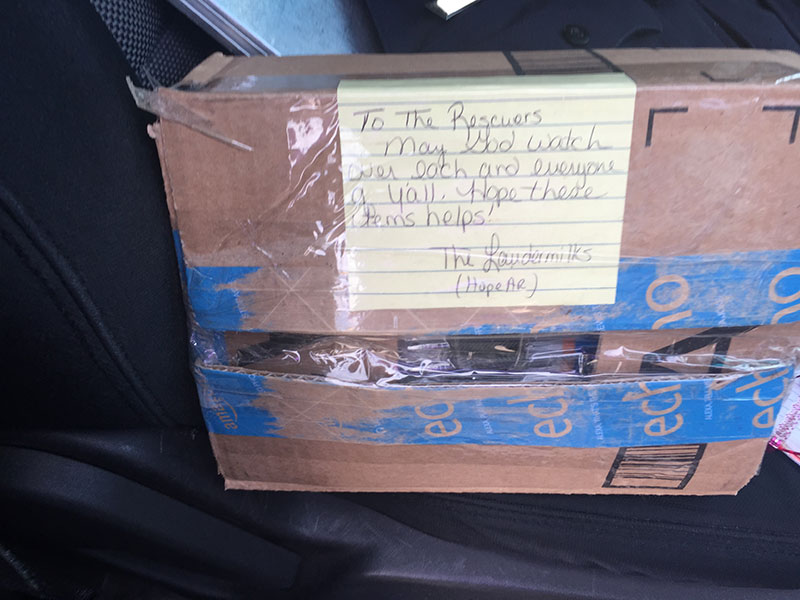 To The Rescuers
May God watch
over each and everyone
of y'all. Hope these
items helps!
The Loudermilks
(Hope AR)
echo
echo
echo
echo
echo